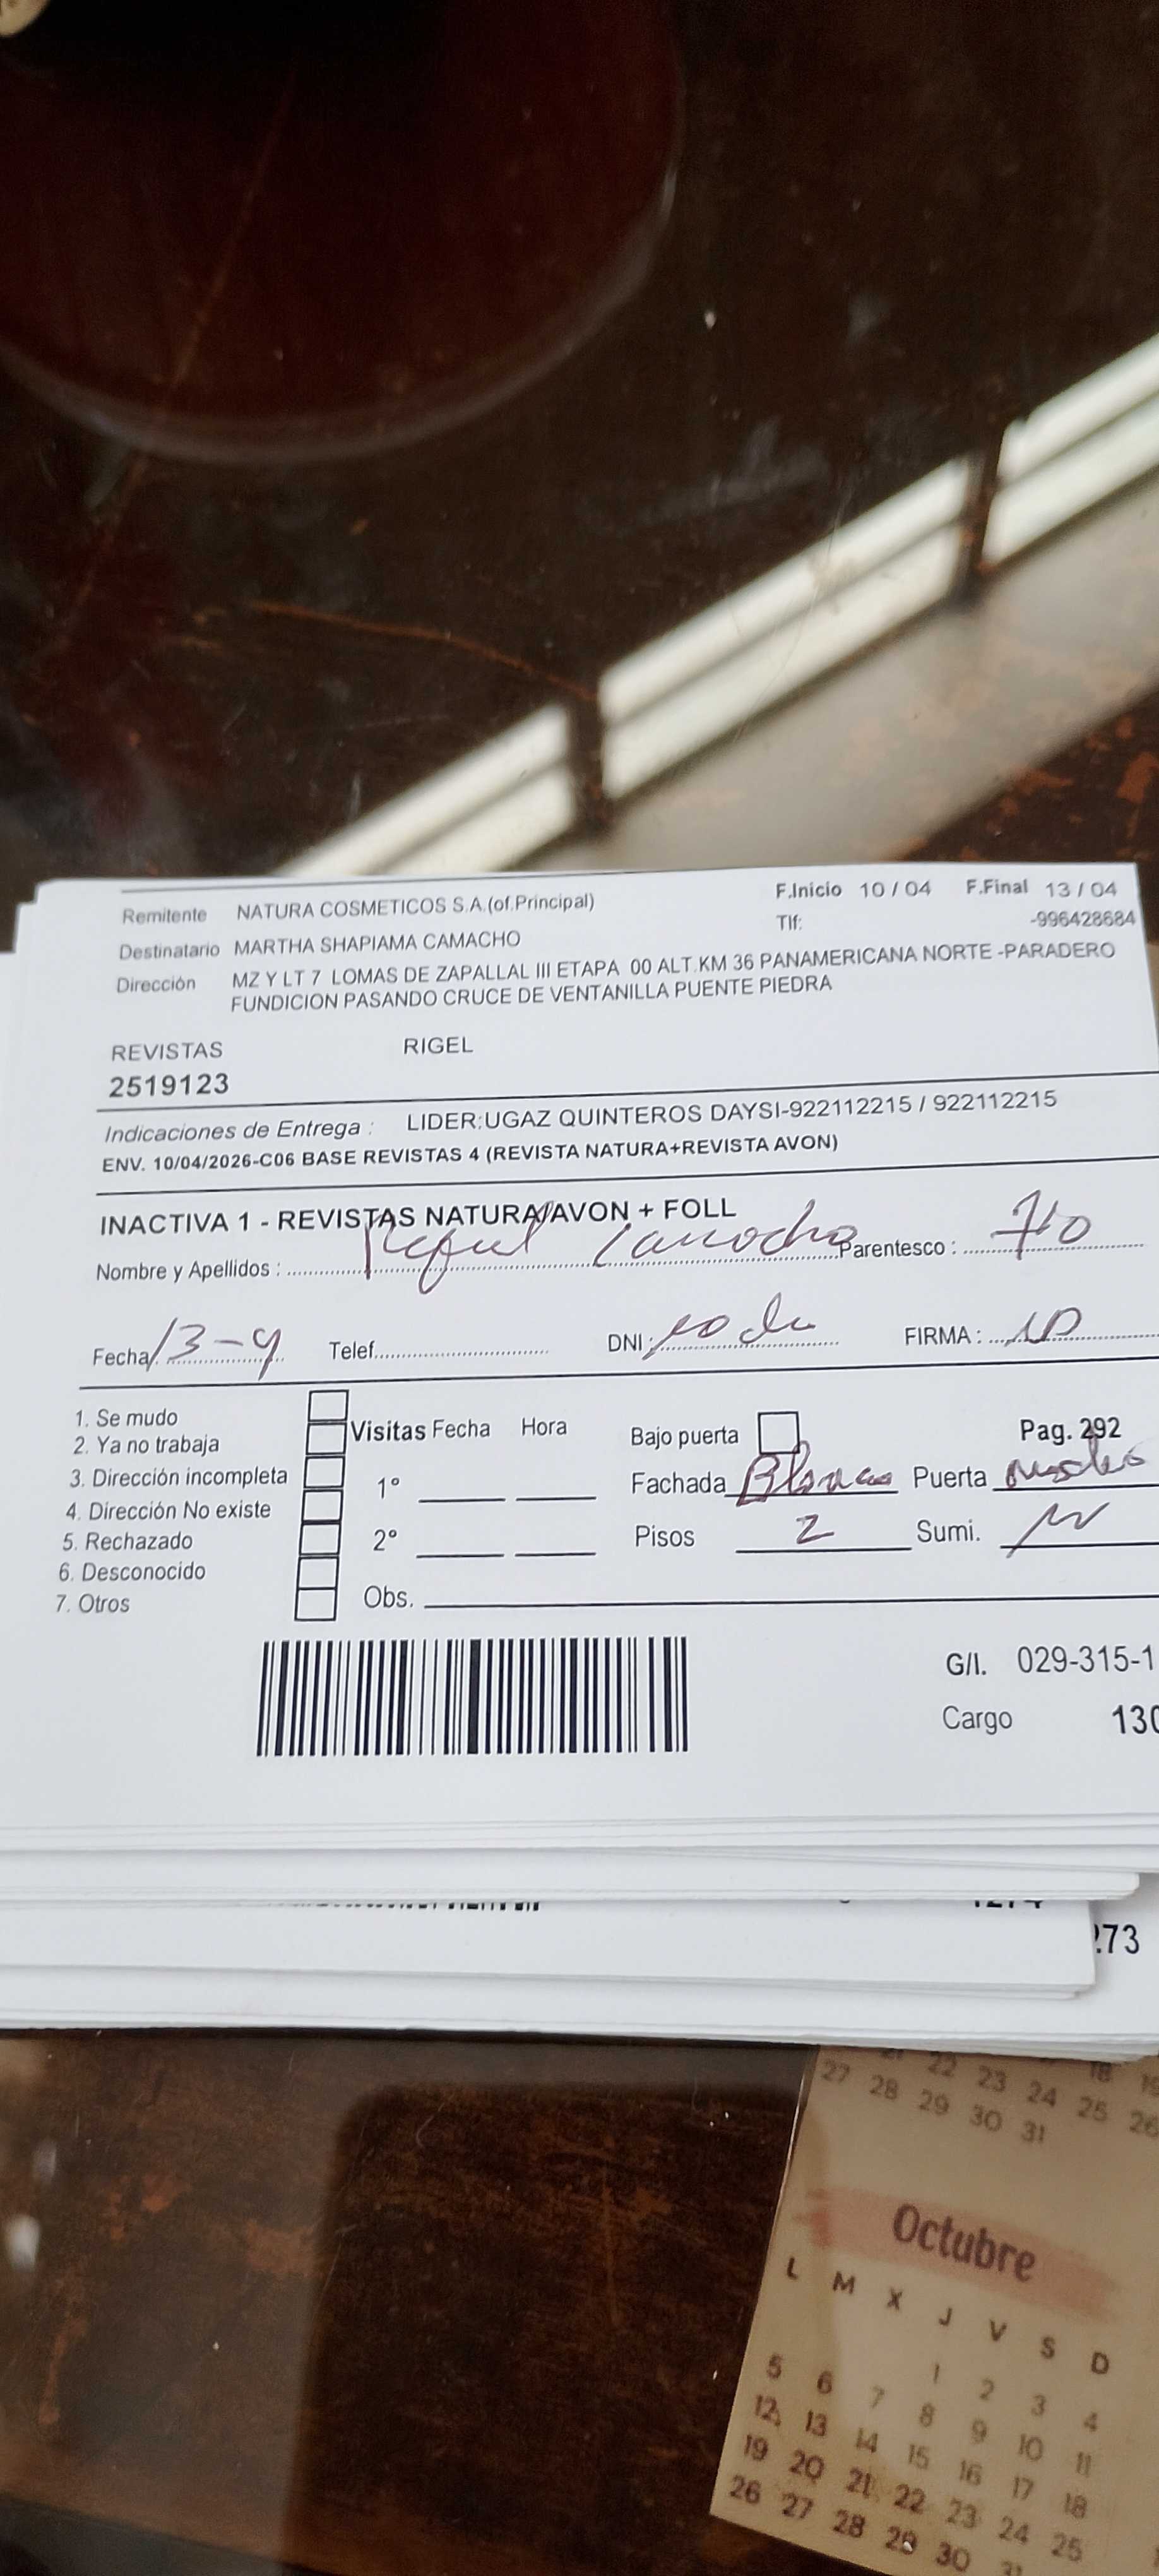 Remitente NATURA COSMETICOS S.A.(of.Principal) F.Inicio 10 / 04 F.Final 13 / 04
Tlf: -996428684
Destinatario MARTHA SHAPIAMA CAMACHO
Dirección MZ Y LT 7 LOMAS DE ZAPALLAL III ETAPA 00 ALT.KM 36 PANAMERICANA NORTE -PARADERO
FUNDICION PASANDO CRUCE DE VENTANILLA PUENTE PIEDRA
REVISTAS RIGEL
2519123
Indicaciones de Entrega : LIDER:UGAZ QUINTEROS DAYSI-922112215 / 922112215
ENV. 10/04/2026-C06 BASE REVISTAS 4 (REVISTA NATURA+REVISTA AVON)
INACTIVA 1 - REVISTAS NATURA/AVON + FOLL
Nombre y Apellidos : Camocho Parentesco :
Fecha 13-4 Telef. DNI: FIRMA :
1. Se mudo
2. Ya no trabaja
3. Dirección incompleta
4. Dirección No existe
5. Rechazado
6. Desconocido
7. Otros
Visitas Fecha Hora
1°
2°
Obs.
Bajo puerta Pag. 292
Fachada Blanca Puerta
Pisos 2 Sumi.
G/I. 029-315-1
Cargo 130
1274
273
21 22 18 19
27 28 29 30 31 23 24 25 26
Octubre
L M X J V S D
1 2 3 4
5 6 7 8 9 10 11
12 13 14 15 16 17 18
19 20 21 22 23 24 25
26 27 28 29 30 31